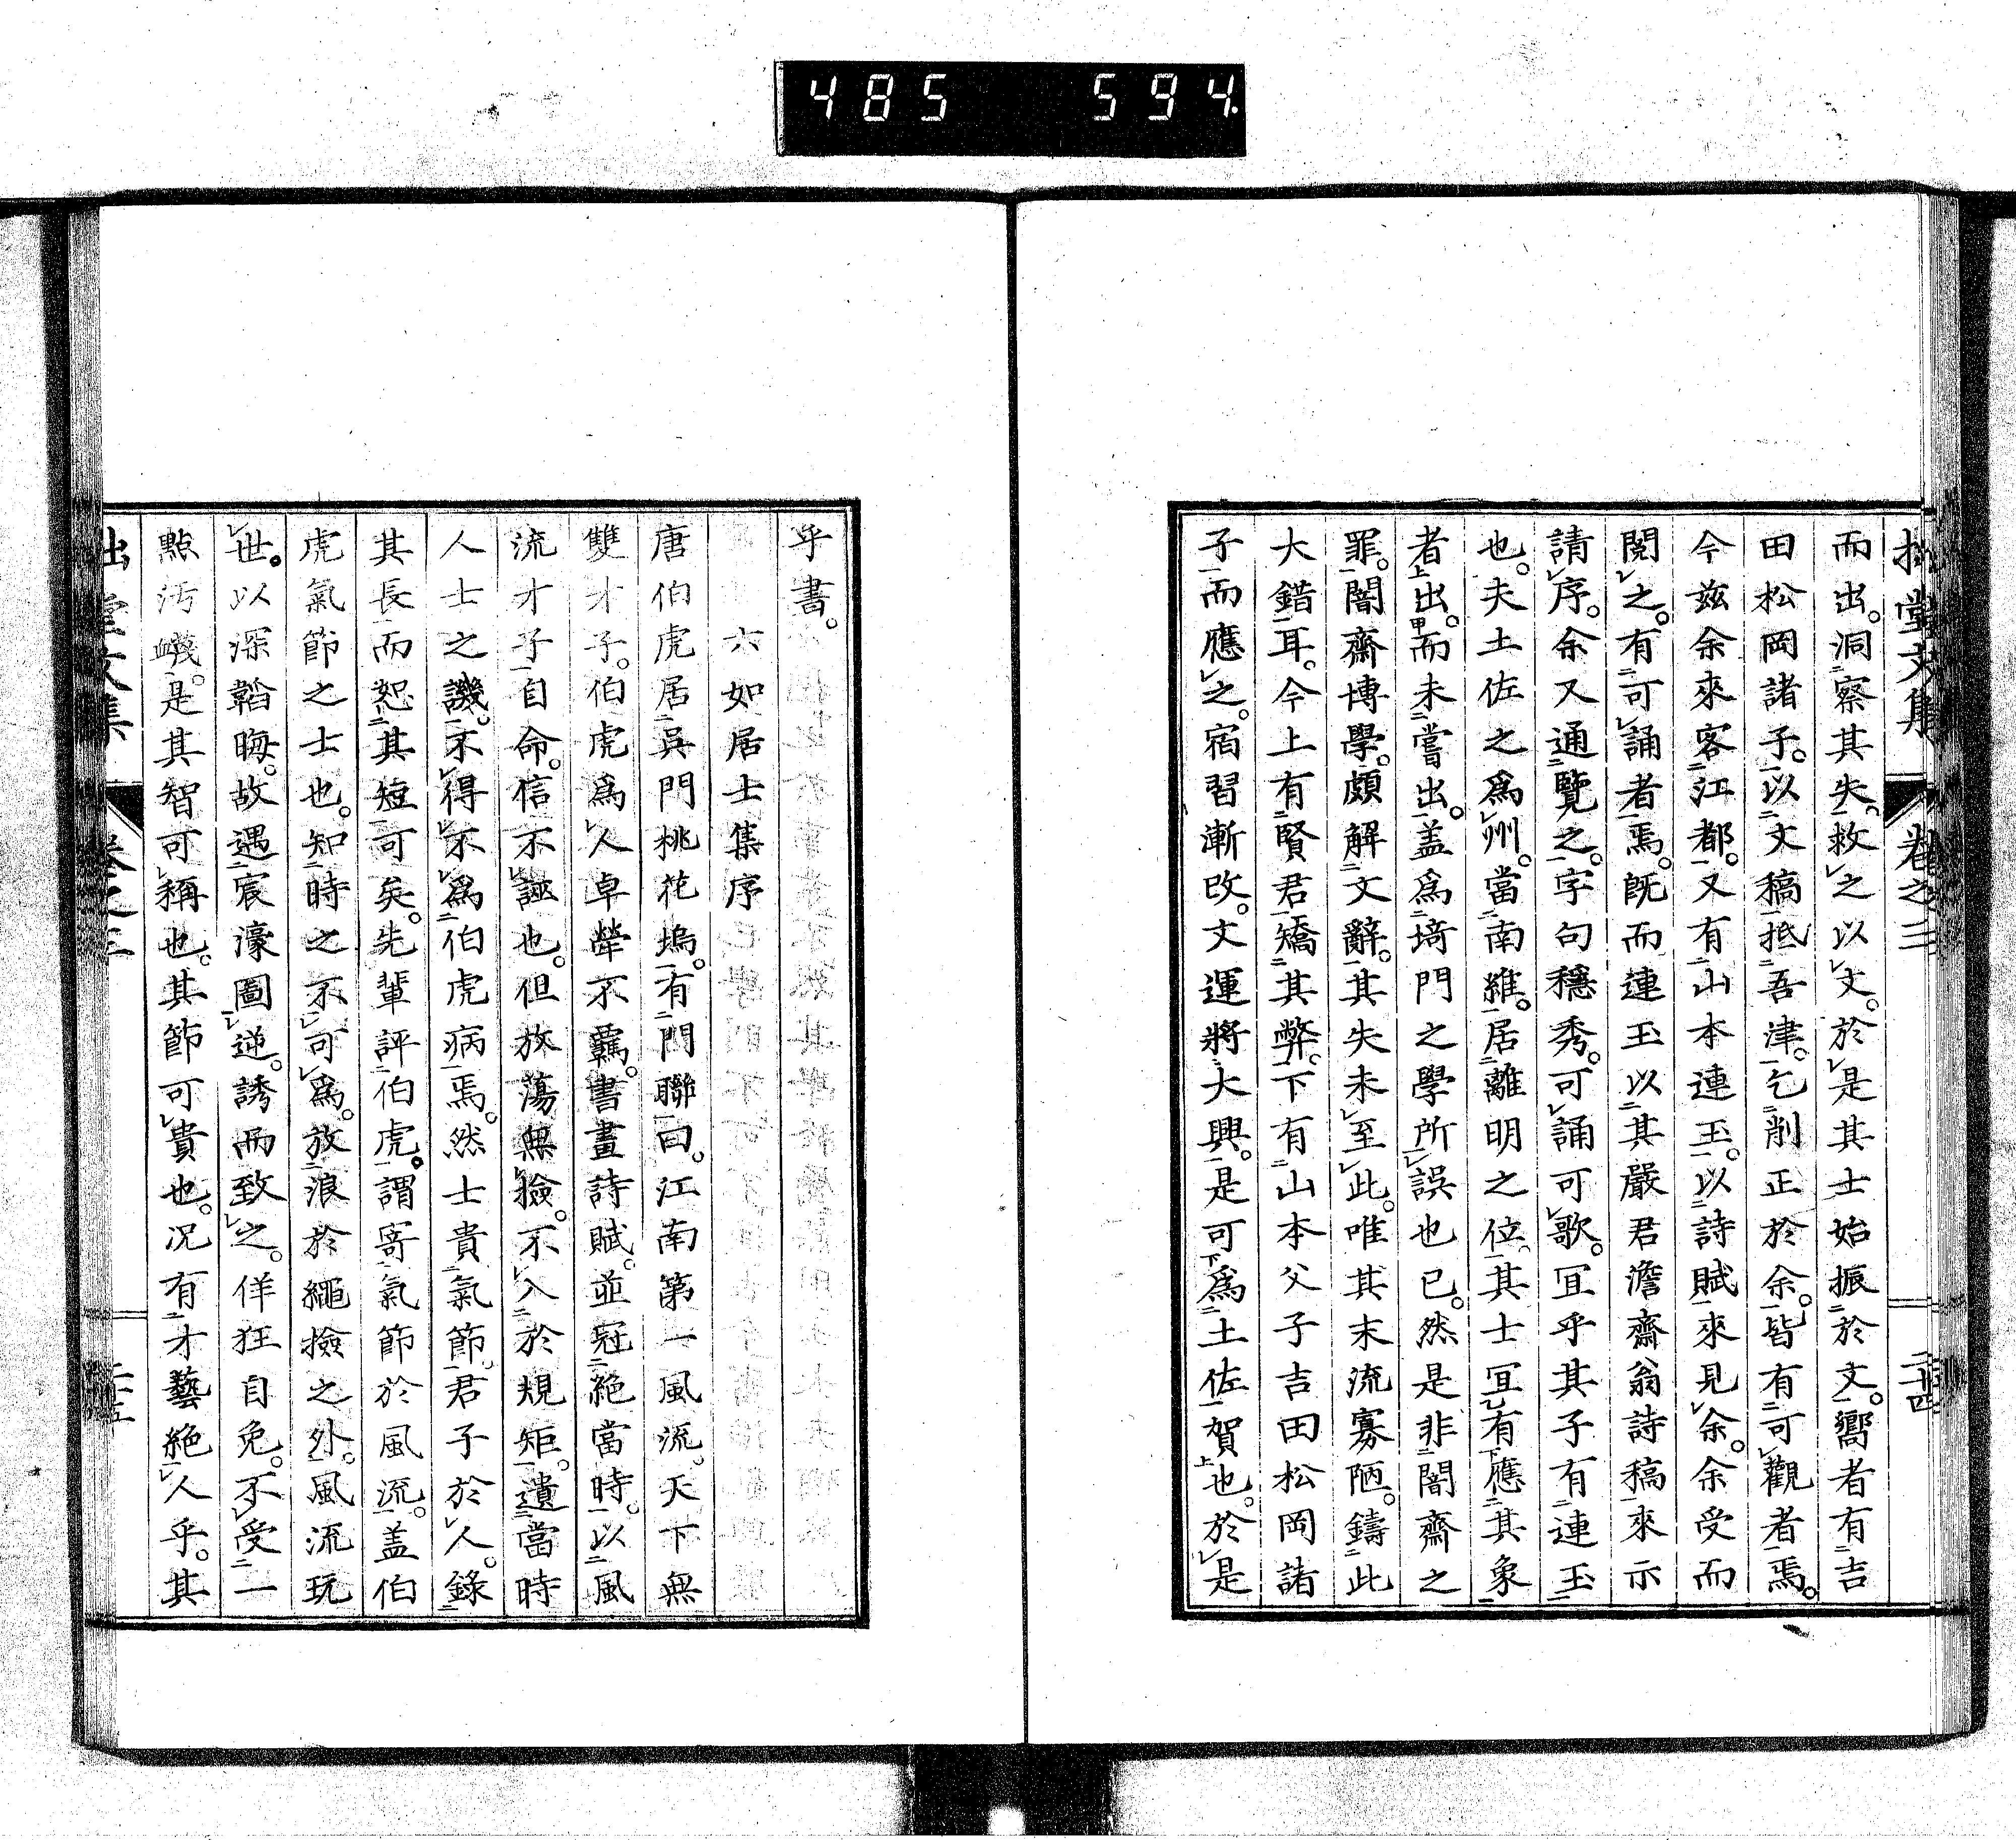 485 594
而出。洞察其失。救之以文。於是其士始振於文。嚮者有吉
田松岡諸子。以文稿抵吾津。乞削正於余。皆有可觀者焉。
今茲余來客江都。又有山本連玉。以詩賦來見余。余受而
閱之。有可誦者焉。既而連玉以其嚴君澹齋翁詩稿來示
請序。余又通覽之。字句穩秀。可誦可歌。宜乎其子有連玉
也。夫土佐之爲州。當南維。居離明之位。其士宜有應其象
者出。而未嘗出。盖爲埼門之學所誤也已。然是非闇齋之
罪。闇齋博學。頗解文辭。其失未至此。唯其末流寡陋。鑄此
大錯耳。今上有賢君矯其弊。下有山本父子吉田松岡諸
子而應之。宿習漸改。文運將大興。是可爲土佐賀也。於是
乎書。
六如居士集序
唐伯虎居吳門桃花塢。有門聯曰。江南第一風流。天下無
雙才子。伯虎爲人卓犖不羈。書畫詩賦。並冠絕當時。以風
流才子自命。信不誣也。但放蕩無撿。不入於規矩。遺當時
人士之譏。不得不爲伯虎病焉。然士貴氣節。君子於人。錄
其長而恕其短可矣。先輩評伯虎。謂寄氣節於風流。盖伯
虎氣節之士也。知時之不可爲。放浪於繩撿之外。風流玩
世。以深韜晦。故遇宸濠圖逆。誘而致之。佯狂自免。不受一
點汚衊。是其智可稱也。其節可貴也。況有才藝絕人乎。其